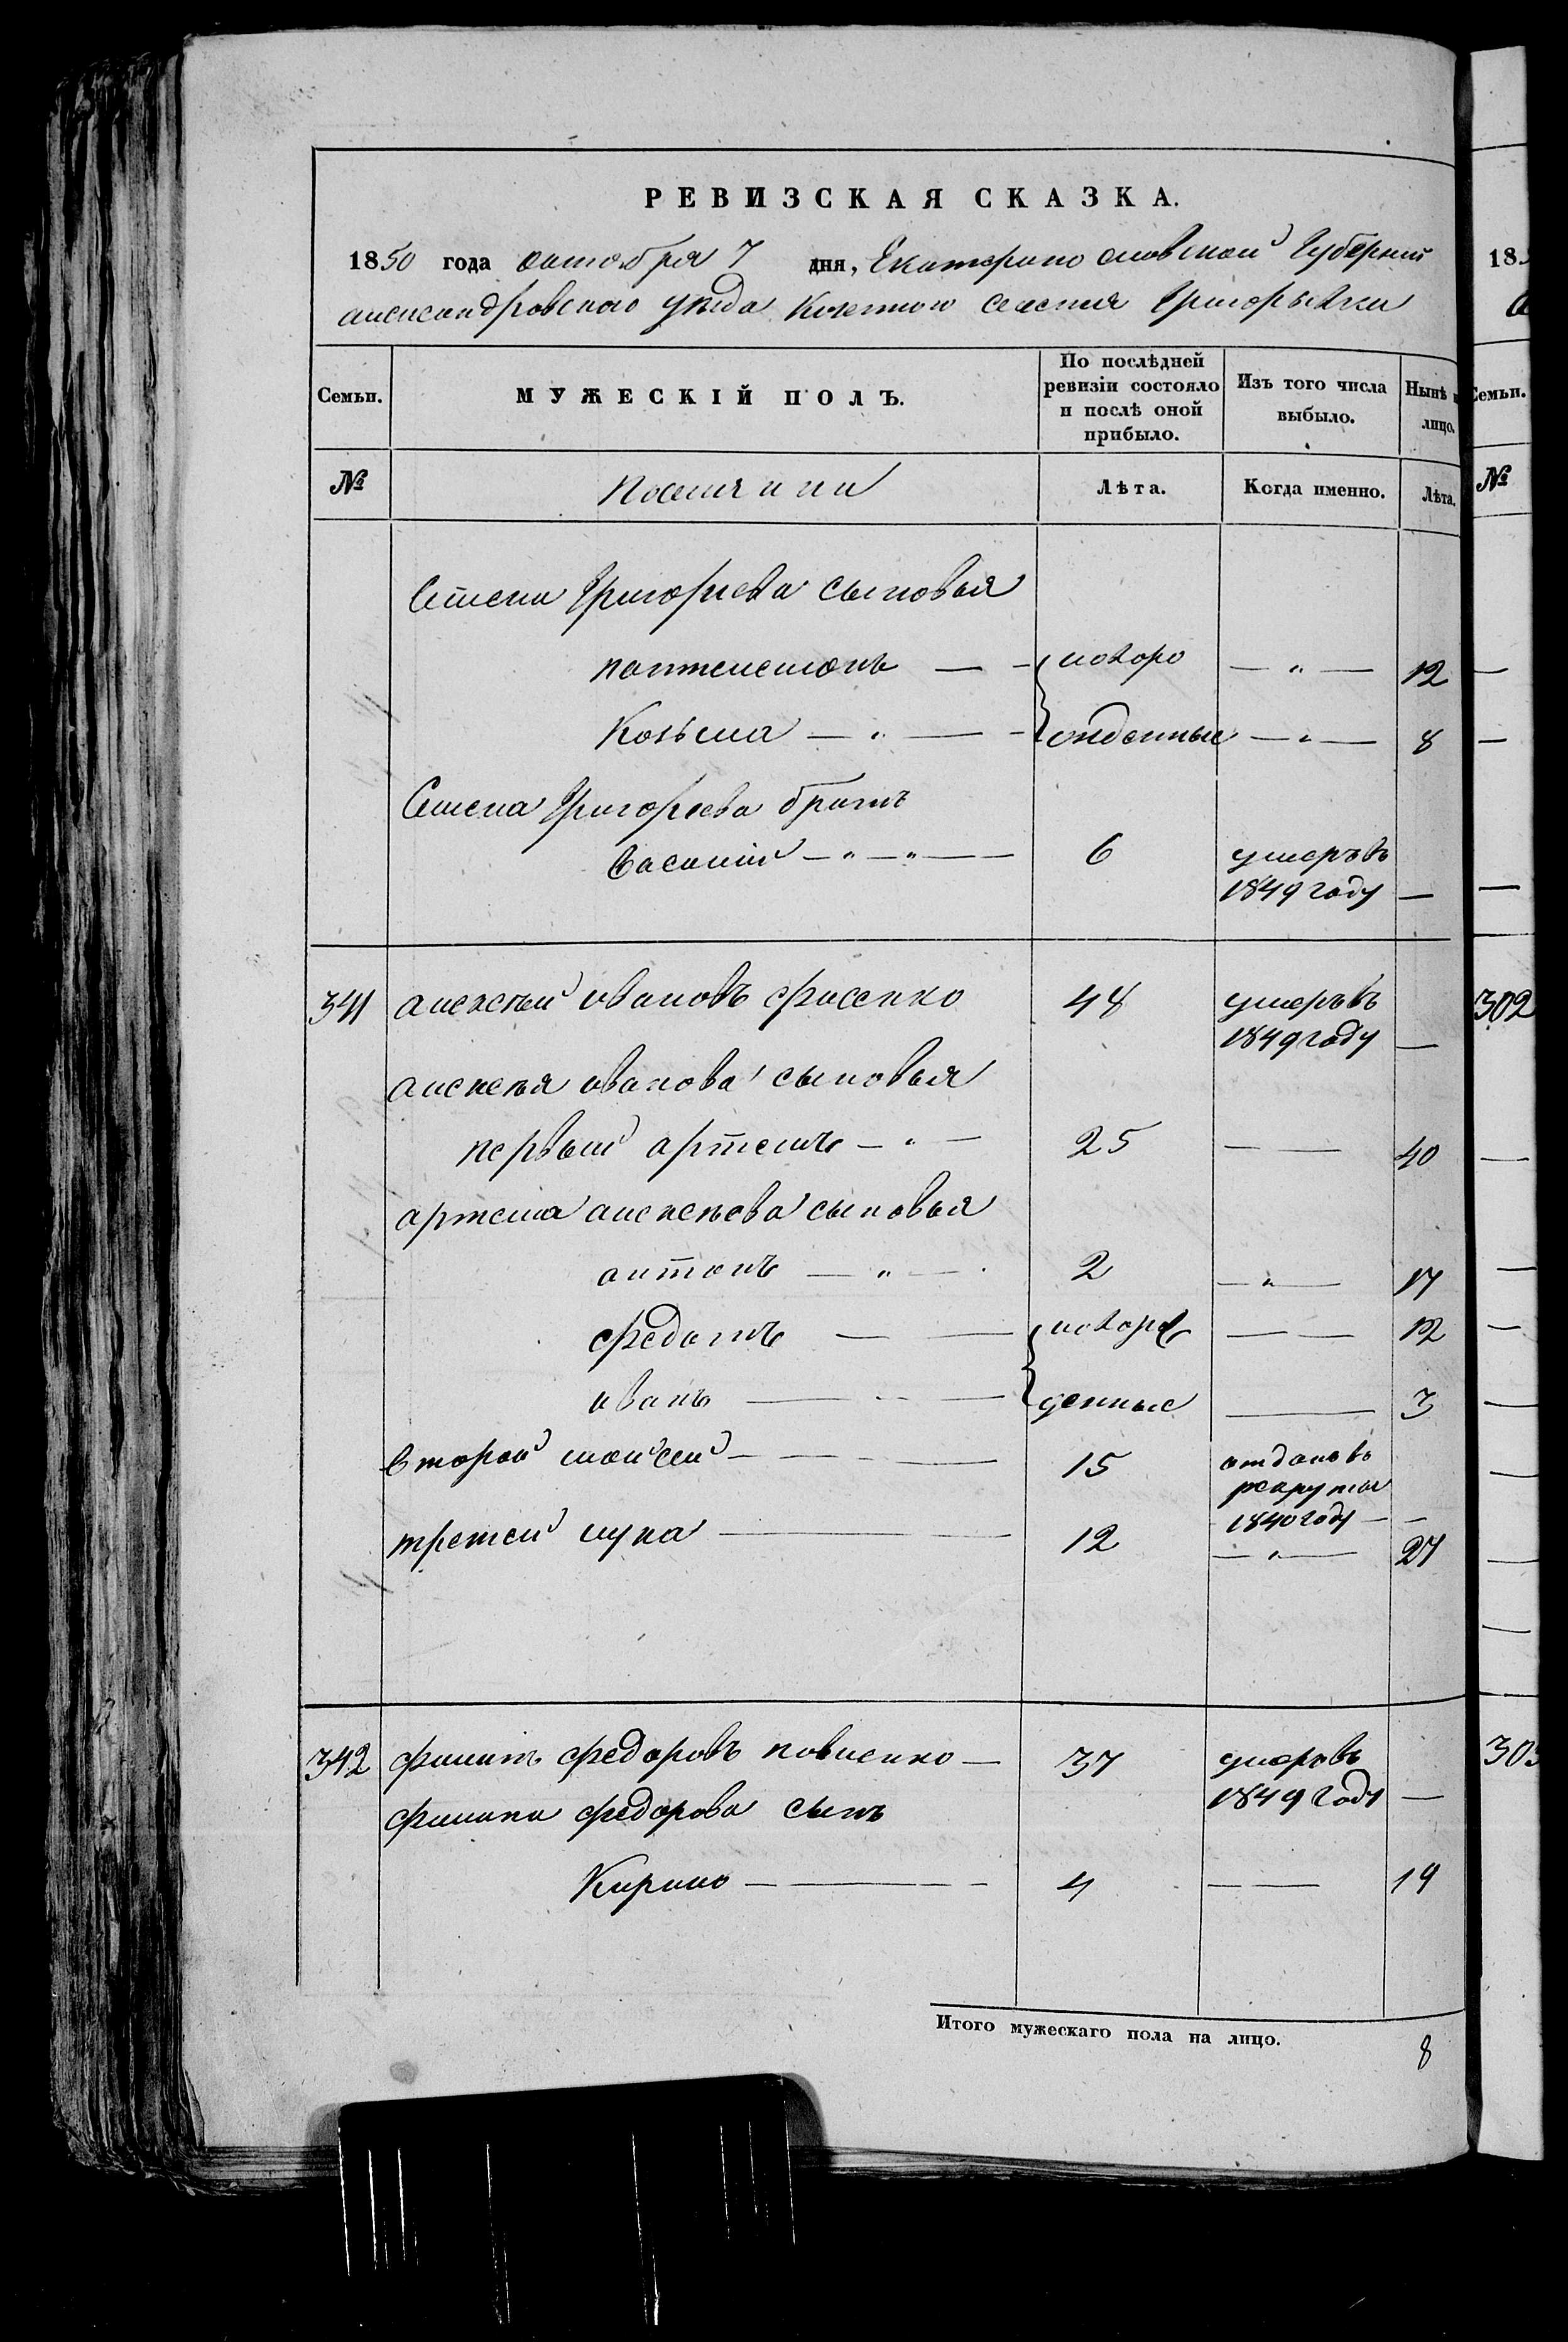 РЕВИЗСКАЯ СКАЗКА.
1850 года октября 7 дня, Екатеринославской Губернии
александровского уезда казенного селения Григорьевки
Семьи. МУЖЕСКІЙ ПОЛЪ. По послѣдней ревизіи состояло и послѣ оной прибыло. Изъ того числа выбыло. Нынѣ на лицо.
№ Поселяни Лѣта. Когда именно. Лѣта.
Семена Григорьева сыновья
пантелемонъ — новоро — „ — 12
Козьма — „ — жденные — „ — 8
Семена Григорьева братъ
василий — „ — „ — 6 умеръ въ
1849 году —
341 алексей ивановъ фисенко 48 умеръ въ
1849 году —
алексея иванова сыновья
первый артемъ — „ — 25 — — 40
артема алексеева сыновья
антонъ — „ — 2 — „ — 17
федотъ — — новорож — — 12
иванъ — — денные — 3
второй мойсей — 15 отданъ въ
рекруты
1840 году —
третей лука — 12 — „ — 27
342 филипъ федоровъ павленко — 37 умеръ въ
1849 году —
филипа федорова сынъ
Кирило — 4 — — 19
Итого мужескаго пола на лицо. 8
18
Семьи.
№
302